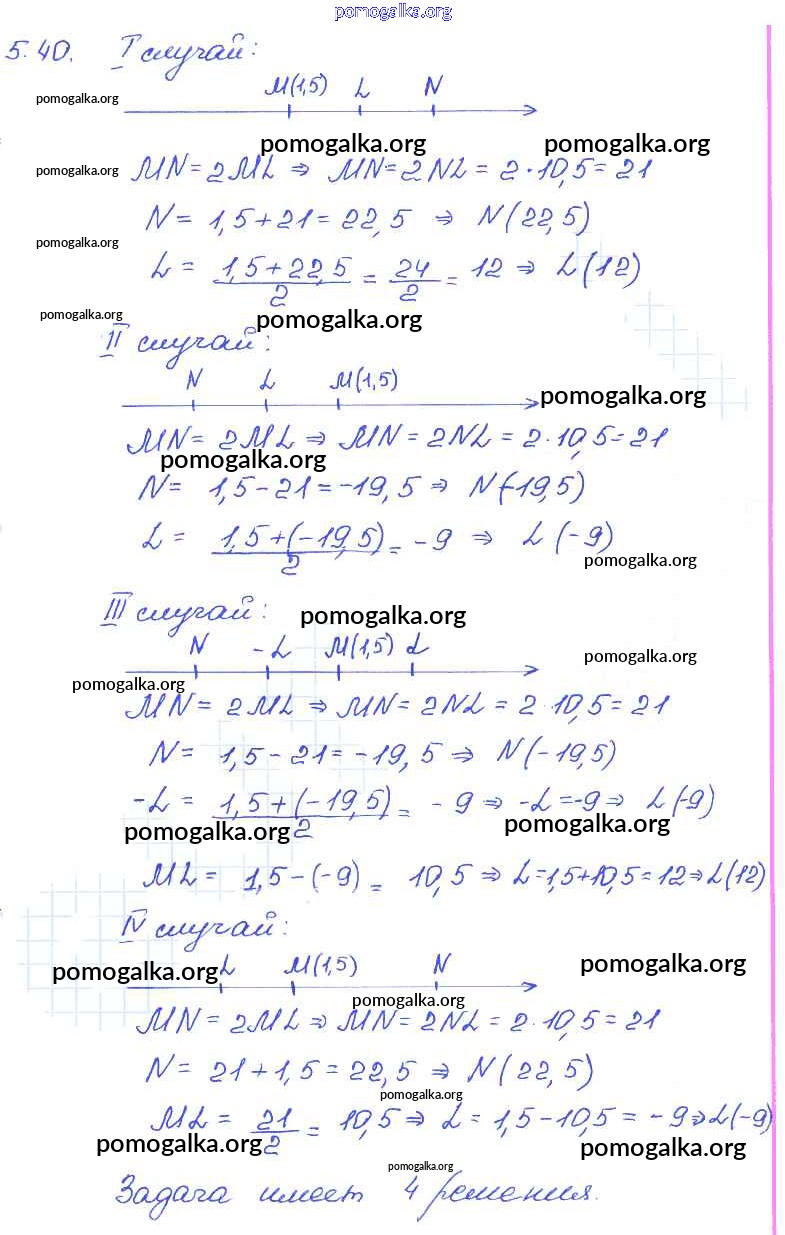 pomogalka.org
5.40. I случай:
M(1,5) L N
pomogalka.org
pomogalka.org pomogalka.org
pomogalka.org MN = 2ML ⇒ MN = 2NL = 2 · 10,5 = 21
N = 1,5 + 21 = 22,5 ⇒ N(22,5)
pomogalka.org
L = (1,5 + 22,5)/2 = 24/2 = 12 ⇒ L(12)
pomogalka.org pomogalka.org
II случай:
N L M(1,5)
pomogalka.org
MN = 2ML ⇒ MN = 2NL = 2 · 10,5 = 21
pomogalka.org
N = 1,5 - 21 = -19,5 ⇒ N(-19,5)
L = (1,5 + (-19,5))/2 = -9 ⇒ L(-9)
pomogalka.org
III случай: pomogalka.org
N -L M(1,5) L
pomogalka.org
pomogalka.org
MN = 2ML ⇒ MN = 2NL = 2 · 10,5 = 21
N = 1,5 - 21 = -19,5 ⇒ N(-19,5)
-L = (1,5 + (-19,5))/2 = -9 ⇒ -L = -9 ⇒ L(-9)
pomogalka.org pomogalka.org
ML = 1,5 - (-9) = 10,5 ⇒ L = 1,5 + 10,5 = 12 ⇒ L(12)
IV случай:
L M(1,5) N
pomogalka.org pomogalka.org
pomogalka.org
MN = 2ML ⇒ MN = 2NL = 2 · 10,5 = 21
N = 21 + 1,5 = 22,5 ⇒ N(22,5)
pomogalka.org
ML = 21/2 = 10,5 ⇒ L = 1,5 - 10,5 = -9 ⇒ L(-9)
pomogalka.org pomogalka.org
pomogalka.org
Задача имеет 4 решения.